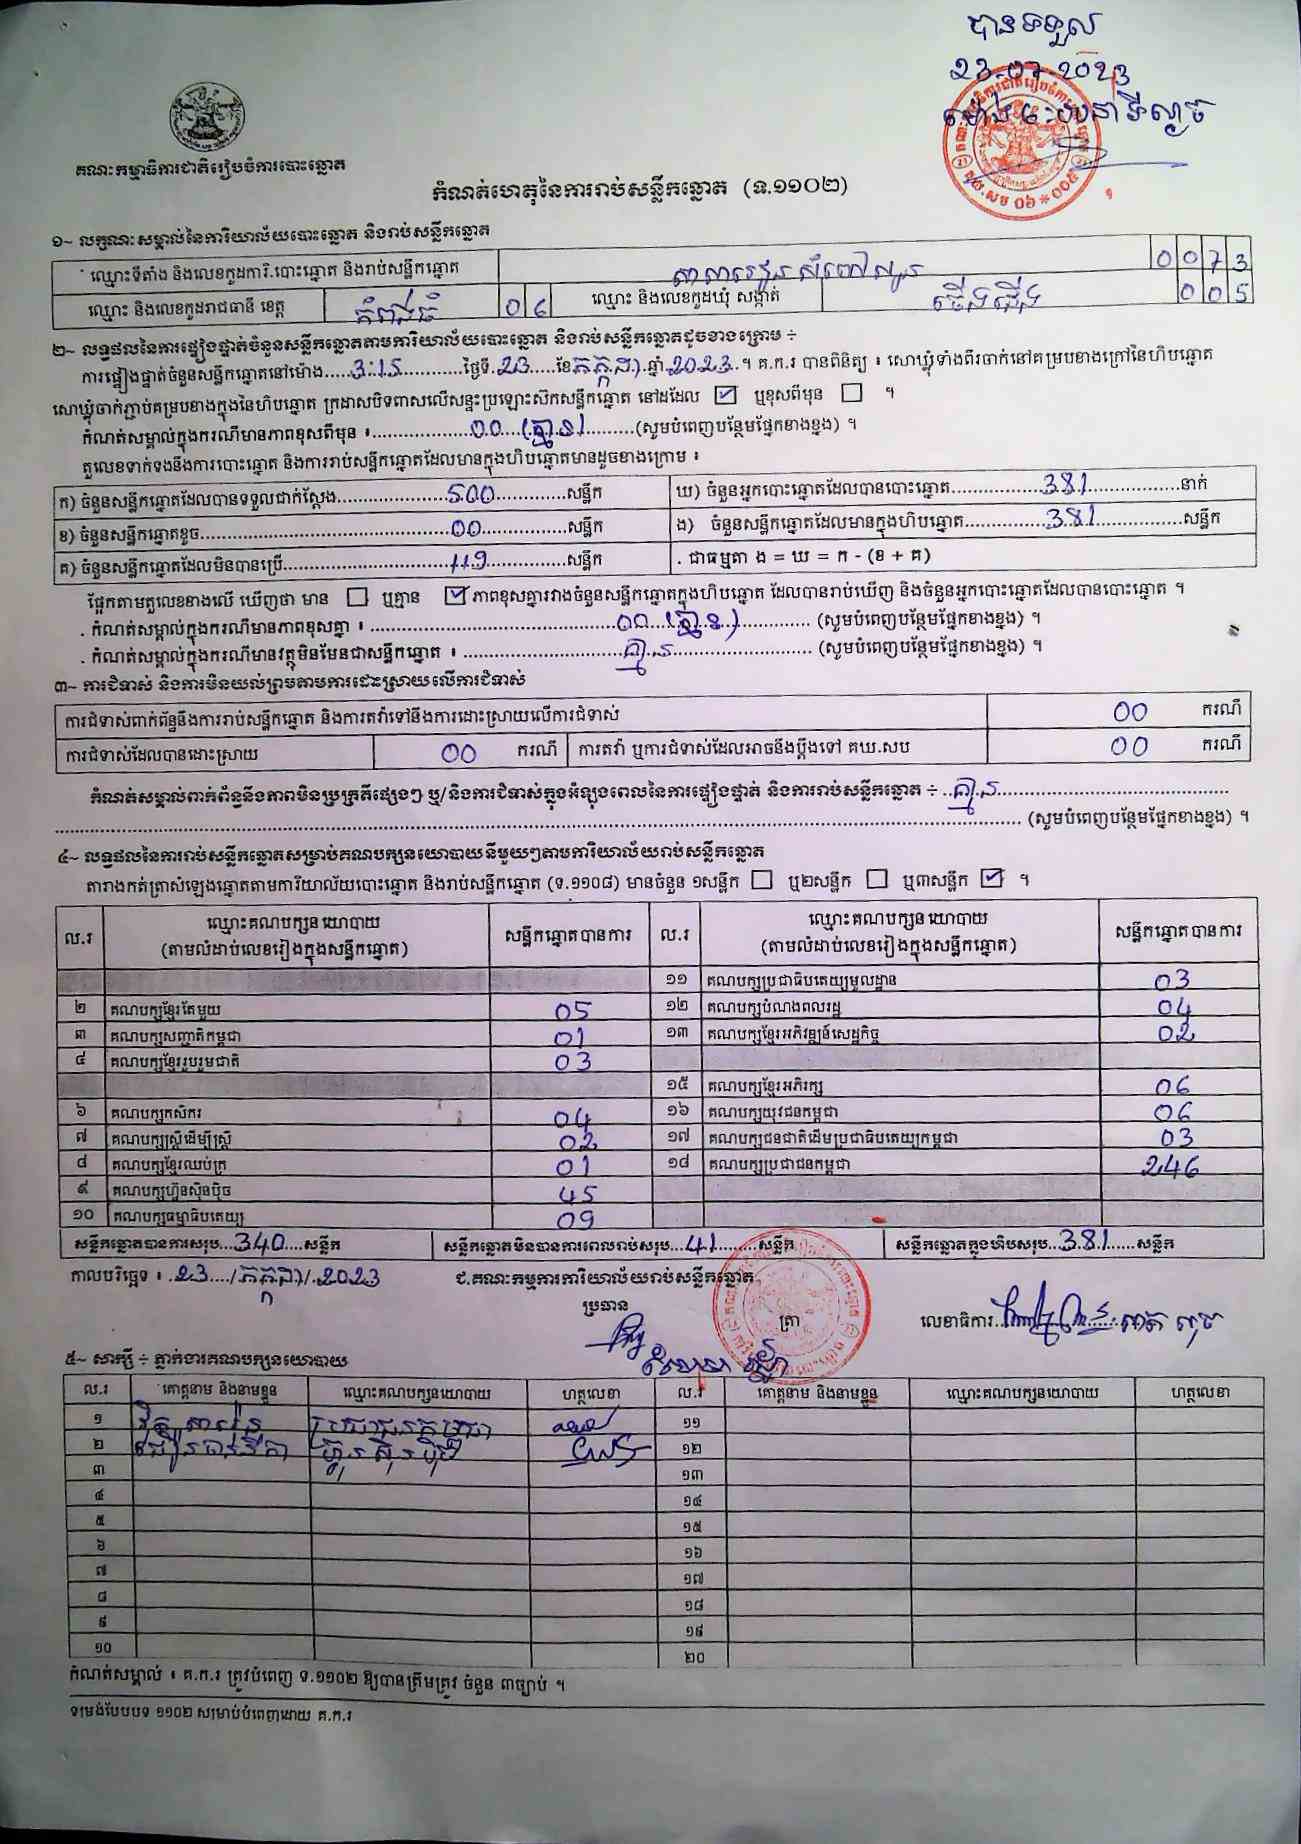 បានទទួល
23-07-2023
គណៈកម្មាធិការជាតិរៀបចំការបោះឆ្នោត
កំណត់ហេតុនៃការរាប់សន្លឹកឆ្នោត (ទ.១១០២)
១~ លក្ខណៈសម្គាល់នៃការិយាល័យបោះឆ្នោត និងរាប់សន្លឹកឆ្នោត
ឈ្មោះទីតាំង និងលេខកូដការិ.បោះឆ្នោត និងរាប់សន្លឹកឆ្នោត 0073
ឈ្មោះ និងលេខកូដរាជធានី ខេត្ត កំពង់ធំ 06 ឈ្មោះ និងលេខកូដឃុំ សង្កាត់ ជើងដើង 005
២~ លទ្ធផលនៃការផ្ទៀងផ្ទាត់ចំនួនសន្លឹកឆ្នោតតាមការិយាល័យបោះឆ្នោត និងរាប់សន្លឹកឆ្នោតដូចខាងក្រោម ÷
ការផ្ទៀងផ្ទាត់ចំនួនសន្លឹកឆ្នោតនៅម៉ោង.....3:15............ថ្ងៃទី.23.....ខែកក្កដា.ឆ្នាំ.2023..។ គ.ក.រ បានពិនិត្យ ៖ សោឃ្លុំទាំងពីរចាក់នៅគម្របខាងក្រៅនៃហិបឆ្នោត
សោឃ្លុំចាក់ភ្ជាប់គម្របខាងក្នុងនៃហិបឆ្នោត ក្រដាសបិទពាសលើសន្ទះប្រឡោះស៊កសន្លឹកឆ្នោត នៅដដែល ☑ ឬខុសពីមុន ☐ ។
កំណត់សម្គាល់ក្នុងករណីមានភាពខុសពីមុន ៖..................00...(គ្មាន).........(សូមបំពេញបន្ថែមផ្នែកខាងខ្នង) ។
តួលេខទាក់ទងនឹងការបោះឆ្នោត និងការរាប់សន្លឹកឆ្នោតដែលមានក្នុងហិបឆ្នោតមានដូចខាងក្រោម ៖
ក) ចំនួនសន្លឹកឆ្នោតដែលបានទទួលជាក់ស្តែង....................500.............សន្លឹក ឃ) ចំនួនអ្នកបោះឆ្នោតដែលបានបោះឆ្នោត.................381.................នាក់
ខ) ចំនួនសន្លឹកឆ្នោតខូច.............................................00...............សន្លឹក ង) ចំនួនសន្លឹកឆ្នោតដែលមានក្នុងហិបឆ្នោត...............381................សន្លឹក
គ) ចំនួនសន្លឹកឆ្នោតដែលមិនបានប្រើ..............................119..............សន្លឹក . ជាធម្មតា ង = ឃ = ក - (ខ + គ)
ផ្អែកតាមតួលេខខាងលើ ឃើញថា មាន ☐ ឬគ្មាន ☑ ភាពខុសគ្នារវាងចំនួនសន្លឹកឆ្នោតក្នុងហិបឆ្នោត ដែលបានរាប់ឃើញ និងចំនួនអ្នកបោះឆ្នោតដែលបានបោះឆ្នោត ។
. កំណត់សម្គាល់ក្នុងករណីមានភាពខុសគ្នា ៖ .............................................00...(គ្មាន)............. (សូមបំពេញបន្ថែមផ្នែកខាងខ្នង) ។
. កំណត់សម្គាល់ក្នុងករណីមានវត្ថុមិនមែនជាសន្លឹកឆ្នោត ៖ .............................គ្មាន......................... (សូមបំពេញបន្ថែមផ្នែកខាងខ្នង) ។
៣~ ការជំទាស់ និងការមិនយល់ព្រមតាមការដោះស្រាយលើការជំទាស់
ការជំទាស់ពាក់ព័ន្ធនឹងការរាប់សន្លឹកឆ្នោត និងការតវ៉ាទៅនឹងការដោះស្រាយលើការជំទាស់ 00 ករណី
ការជំទាស់ដែលបានដោះស្រាយ 00 ករណី ការតវ៉ា ឬការជំទាស់ដែលអាចនឹងប្តឹងទៅ គឃ.សប 00 ករណី
កំណត់សម្គាល់ពាក់ព័ន្ធនឹងភាពមិនប្រក្រតីផ្សេងៗ ឬ/និងការជំទាស់ក្នុងអំឡុងពេលនៃការផ្ទៀងផ្ទាត់ និងការរាប់សន្លឹកឆ្នោត ÷ ..គ្មាន..........................................
.......................................................................................................................................................... (សូមបំពេញបន្ថែមផ្នែកខាងខ្នង) ។
៤~ លទ្ធផលនៃការរាប់សន្លឹកឆ្នោតសម្រាប់គណបក្សនយោបាយនីមួយៗតាមការិយាល័យរាប់សន្លឹកឆ្នោត
តារាងកត់ត្រាសំឡេងឆ្នោតតាមការិយាល័យបោះឆ្នោត និងរាប់សន្លឹកឆ្នោត (ទ.១១០៨) មានចំនួន ១សន្លឹក ☐ ឬ២សន្លឹក ☐ ឬ៣សន្លឹក ☑ ។
ល.រ ឈ្មោះគណបក្សនយោបាយ (តាមលំដាប់លេខរៀងក្នុងសន្លឹកឆ្នោត) សន្លឹកឆ្នោតបានការ ល.រ ឈ្មោះគណបក្សនយោបាយ (តាមលំដាប់លេខរៀងក្នុងសន្លឹកឆ្នោត) សន្លឹកឆ្នោតបានការ
១១ គណបក្សប្រជាធិបតេយ្យមូលដ្ឋាន 03
២ គណបក្សខ្មែរតែមួយ 05 ១២ គណបក្សបំណងពលរដ្ឋ 04
៣ គណបក្សសញ្ជាតិកម្ពុជា 01 ១៣ គណបក្សខ្មែរអភិវឌ្ឍន៍សេដ្ឋកិច្ច 02
៤ គណបក្សខ្មែររួបរួមជាតិ 03
១៥ គណបក្សខ្មែរអភិរក្ស 06
៦ គណបក្សកសិករ 04 ១៦ គណបក្សយុវជនកម្ពុជា 06
៧ គណបក្សស្ត្រីដើម្បីស្ត្រី 02 ១៧ គណបក្សជនជាតិដើមប្រជាធិបតេយ្យកម្ពុជា 03
៨ គណបក្សខ្មែរឈប់ក្រ 01 ១៨ គណបក្សប្រជាជនកម្ពុជា 246
៩ គណបក្សហ្វ៊ុនស៊ិនប៉ិច 45
១០ គណបក្សធម្មាធិបតេយ្យ 09
សន្លឹកឆ្នោតបានការសរុប...340....សន្លឹក សន្លឹកឆ្នោតមិនបានការពេលរាប់សរុប...41........សន្លឹក សន្លឹកឆ្នោតក្នុងហិបសរុប...381......សន្លឹក
កាលបរិច្ឆេទ ៖ .23..../កក្កដា/.2023 ជ.គណៈកម្មការការិយាល័យរាប់សន្លឹកឆ្នោត
ប្រធាន ត្រា លេខាធិការ
៥~ សាក្សី ÷ ភ្នាក់ងារគណបក្សនយោបាយ
ល.រ គោត្តនាម និងនាមខ្លួន ឈ្មោះគណបក្សនយោបាយ ហត្ថលេខា ល.រ គោត្តនាម និងនាមខ្លួន ឈ្មោះគណបក្សនយោបាយ ហត្ថលេខា
១ ប្រជាជនកម្ពុជា ១១
២ ហ្វ៊ុនស៊ិនប៉ិច ១២
៣ ១៣
៤ ១៤
៥ ១៥
៦ ១៦
៧ ១៧
៨ ១៨
៩ ១៩
១០ ២០
កំណត់សម្គាល់ ៖ គ.ក.រ ត្រូវបំពេញ ទ.១១០២ ឱ្យបានត្រឹមត្រូវ ចំនួន ៣ច្បាប់ ។
ទម្រង់បែបបទ ១១០២ សម្រាប់បំពេញដោយ គ.ក.រ